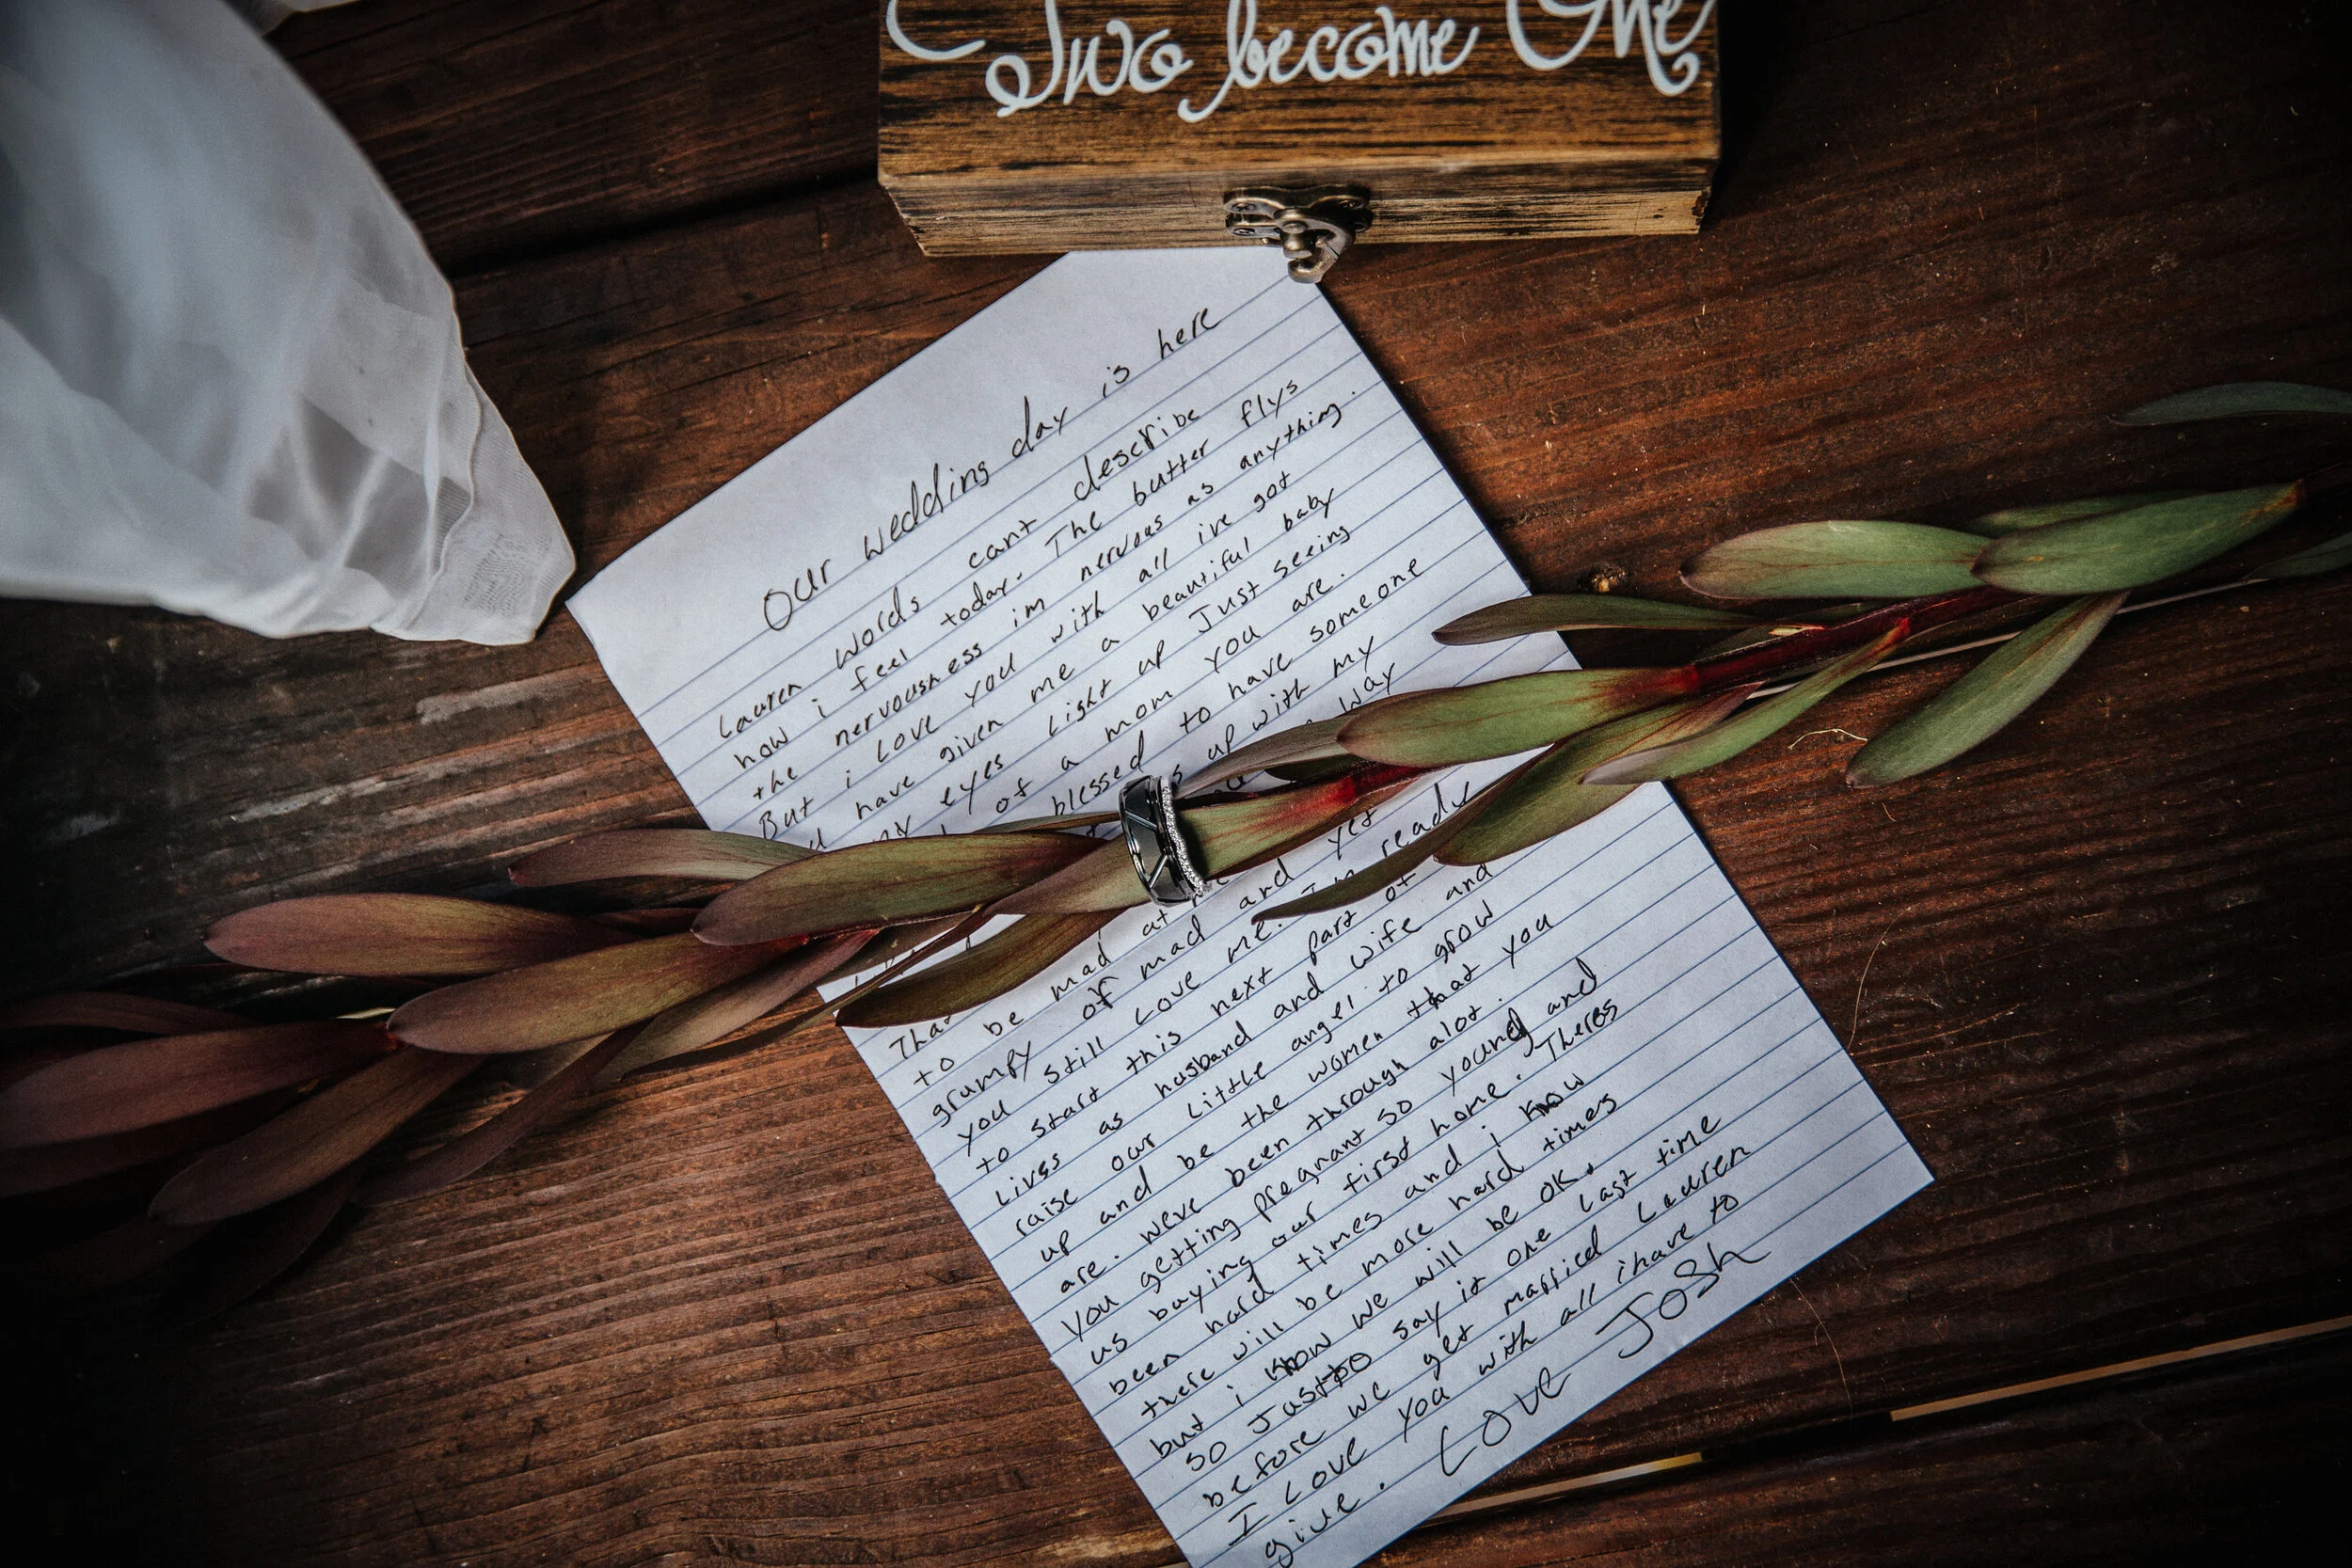 Two become One
Our wedding day is here
Lauren words cant describe
how i feel today. The butter flys
the nervousness im nervous as anything.
But i Love you with all ive got
have given me a beautiful baby
my eyes Light up Just seeing
of a mom you are.
blessed to have someone
up with my
way
yet
to be mad at
grumpy of mad and
you still Love me. Im ready
to start this next part of
Lives as husband and wife and
raise our Little angel to grow
up and be the women that you
are. weve been through alot.
You getting pregnant so young and
us buying our first home. Theres
been hard times and i know
there will be more hard times
but i know we will be ok.
so Just to say it one Last time
before we get married Lauren
I Love You with all i have to
give. Love Josh